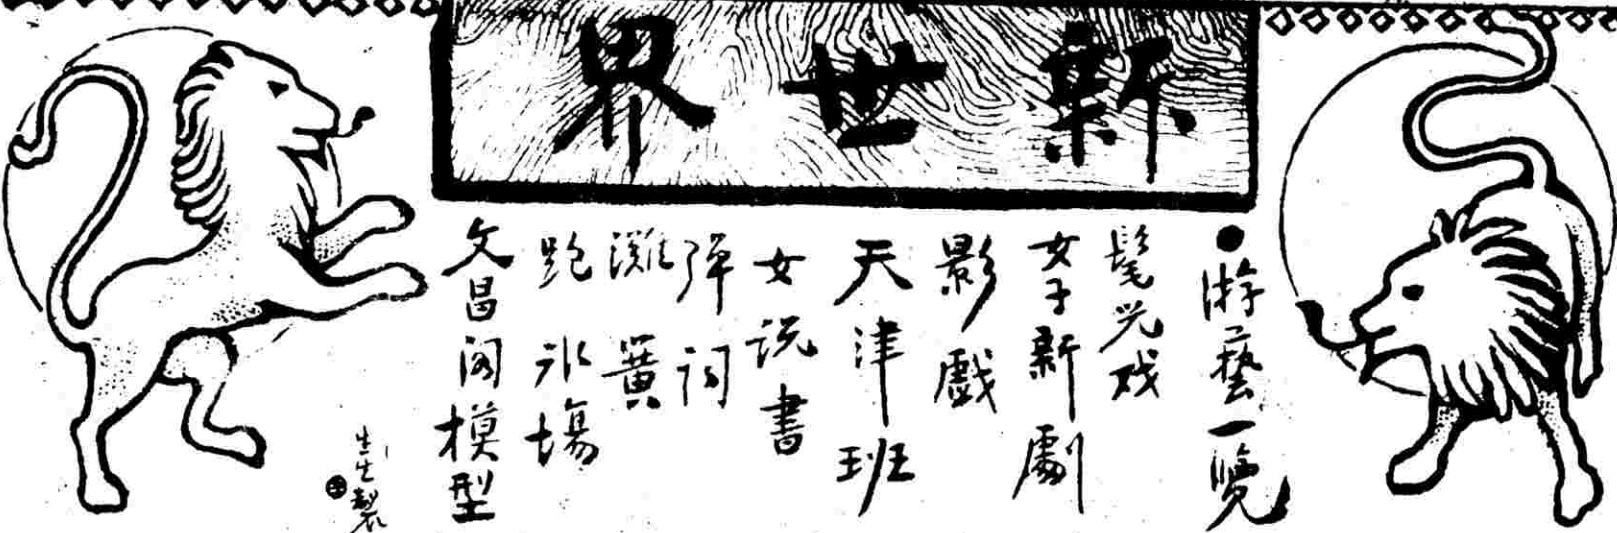 新世界
●游藝一覽
髦児戏
女子新劇
影戲
天津班
女説書
弹词
灘簧
跑氷場
文昌阁模型
生生製